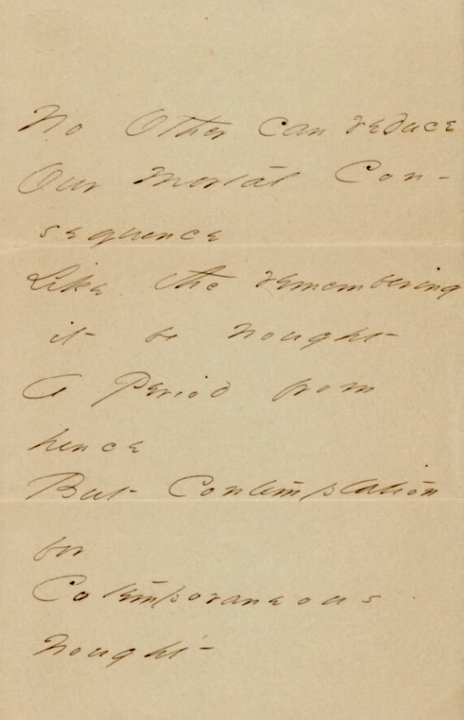 No Other can reduce
Our mortal Con-
sequence
Like the remembering
it be nought -
A Period from
hence
But Contemplation
for
Cotemporaneous
nought -